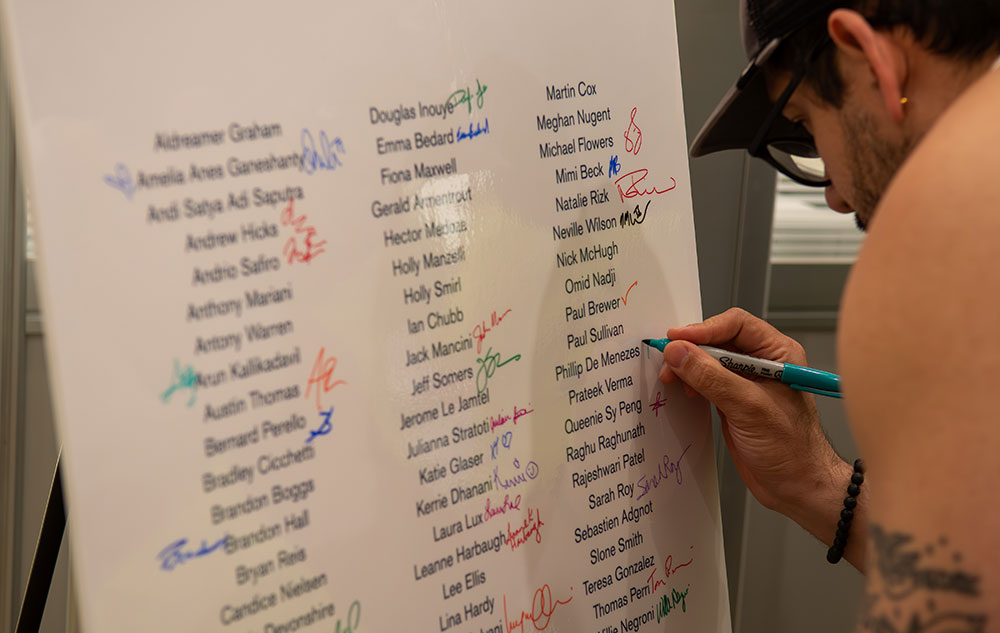 Aldreamer Graham
Amelia Anes Ganeshanty
Andi Satya Adi Saputra
Andrew Hicks
Andrio Safiro
Anthony Mariani
Antony Warren
Arun Kallikadavil
Austin Thomas
Bernard Perello
Bradley Cicchetti
Brandon Boggs
Brandon Hall
Bryan Reis
Candice Nielsen
Devonshire
Douglas Inouye
Emma Bedard
Fiona Maxwell
Gerald Armentrout
Hector Medoza
Holly Manzelli
Holly Smirl
Ian Chubb
Jack Mancini
Jeff Somers
Jerome Le Jamtel
Julianna Stratoti
Katie Glaser
Kerrie Dhanani Kerrie
Laura Lux
Leanne Harbaugh Leannah Harbaugh
Lee Ellis
Lina Hardy
Martin Cox
Meghan Nugent
Michael Flowers
Mimi Beck MB
Natalie Rizk
Neville Wilson
Nick McHugh
Omid Nadji
Paul Brewer
Paul Sullivan
Phillip De Menezes
Prateek Verma
Queenie Sy Peng
Raghu Raghunath
Rajeshwari Patel
Sarah Roy Sarah Roy
Sebastien Adgnot
Slone Smith
Teresa Gonzalez
Thomas Perri Tom Perri
Willie Negroni
Sharpie